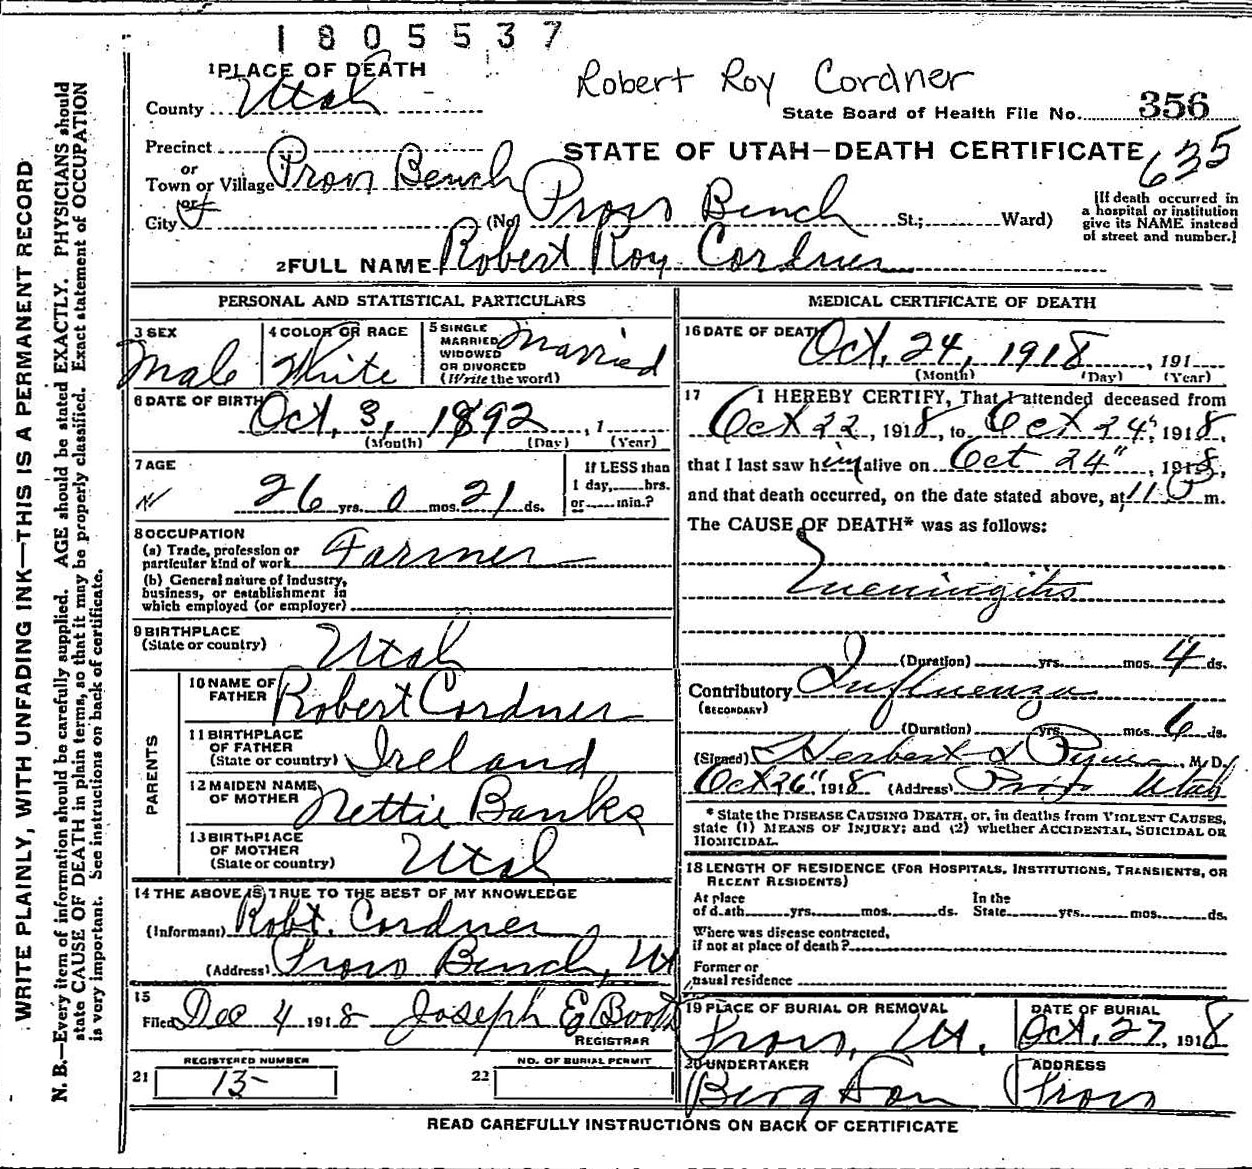 1805537
Robert Roy Cordner
1 PLACE OF DEATH
County Utah
State Board of Health File No. 356
Precinct
or
Town or Village Provo Bench
STATE OF UTAH—DEATH CERTIFICATE 635
or
City (No. Provo Bench St.; Ward)
[If death occurred in
a hospital or institution
give its NAME instead
of street and number.]
2 FULL NAME Robert Roy Cordner
WRITE PLAINLY, WITH UNFADING INK—THIS IS A PERMANENT RECORD
N. B.—Every item of information should be carefully supplied. AGE should be stated EXACTLY. PHYSICIANS should
state CAUSE OF DEATH in plain terms, so that it may be properly classified. Exact statement of OCCUPATION
is very important. See instructions on back of certificate.
PERSONAL AND STATISTICAL PARTICULARS
3 SEX
Male
4 COLOR OR RACE
White
5 SINGLE
MARRIED
WIDOWED
OR DIVORCED
(Write the word)
Married
6 DATE OF BIRTH Oct. 3, 1892, 1
(Month) (Day) (Year)
7 AGE
26 yrs. 0 mos. 21 ds.
If LESS than
1 day, hrs.
or min.?
8 OCCUPATION
(a) Trade, profession or
particular kind of work Farmer
(b) General nature of industry,
business, or establishment in
which employed (or employer)
9 BIRTHPLACE
(State or country) Utah
PARENTS
10 NAME OF
FATHER Robert Cordner
11 BIRTHPLACE
OF FATHER
(State or country) Ireland
12 MAIDEN NAME
OF MOTHER Nettie Banks
13 BIRTHPLACE
OF MOTHER
(State or country) Utah
14 THE ABOVE IS TRUE TO THE BEST OF MY KNOWLEDGE
(Informant) Robt. Cordner
(Address) Provo Bench, Ut
15
Filed Dec 4 1918 Joseph E Booth
REGISTRAR
REGISTERED NUMBER
21 13-
NO. OF BURIAL PERMIT
22
MEDICAL CERTIFICATE OF DEATH
16 DATE OF DEATH Oct. 24, 1918, 191
(Month) (Day) (Year)
17 I HEREBY CERTIFY, That I attended deceased from
Oct 22, 1918, to Oct 24", 1918,
that I last saw him alive on Oct 24", 1918,
and that death occurred, on the date stated above, at m.
The CAUSE OF DEATH* was as follows:
Meningitis
(Duration) yrs. mos. 4 ds.
Contributory Influenza
(SECONDARY)
(Duration) yrs. mos. 6 ds.
(Signed) Herbert M. D.
Oct 26", 1918 (Address) Provo Utah
* State the DISEASE CAUSING DEATH, or, in deaths from VIOLENT CAUSES,
state (1) MEANS OF INJURY; and (2) whether ACCIDENTAL, SUICIDAL OR
HOMICIDAL.
18 LENGTH OF RESIDENCE (FOR HOSPITALS, INSTITUTIONS, TRANSIENTS, OR
RECENT RESIDENTS)
At place
of death yrs. mos. ds.
In the
State yrs. mos. ds.
Where was disease contracted,
if not at place of death?
Former or
usual residence
19 PLACE OF BURIAL OR REMOVAL
Provo, Ut.
DATE OF BURIAL
Oct. 27, 1918
20 UNDERTAKER
Berg & Son
ADDRESS
Provo
READ CAREFULLY INSTRUCTIONS ON BACK OF CERTIFICATE